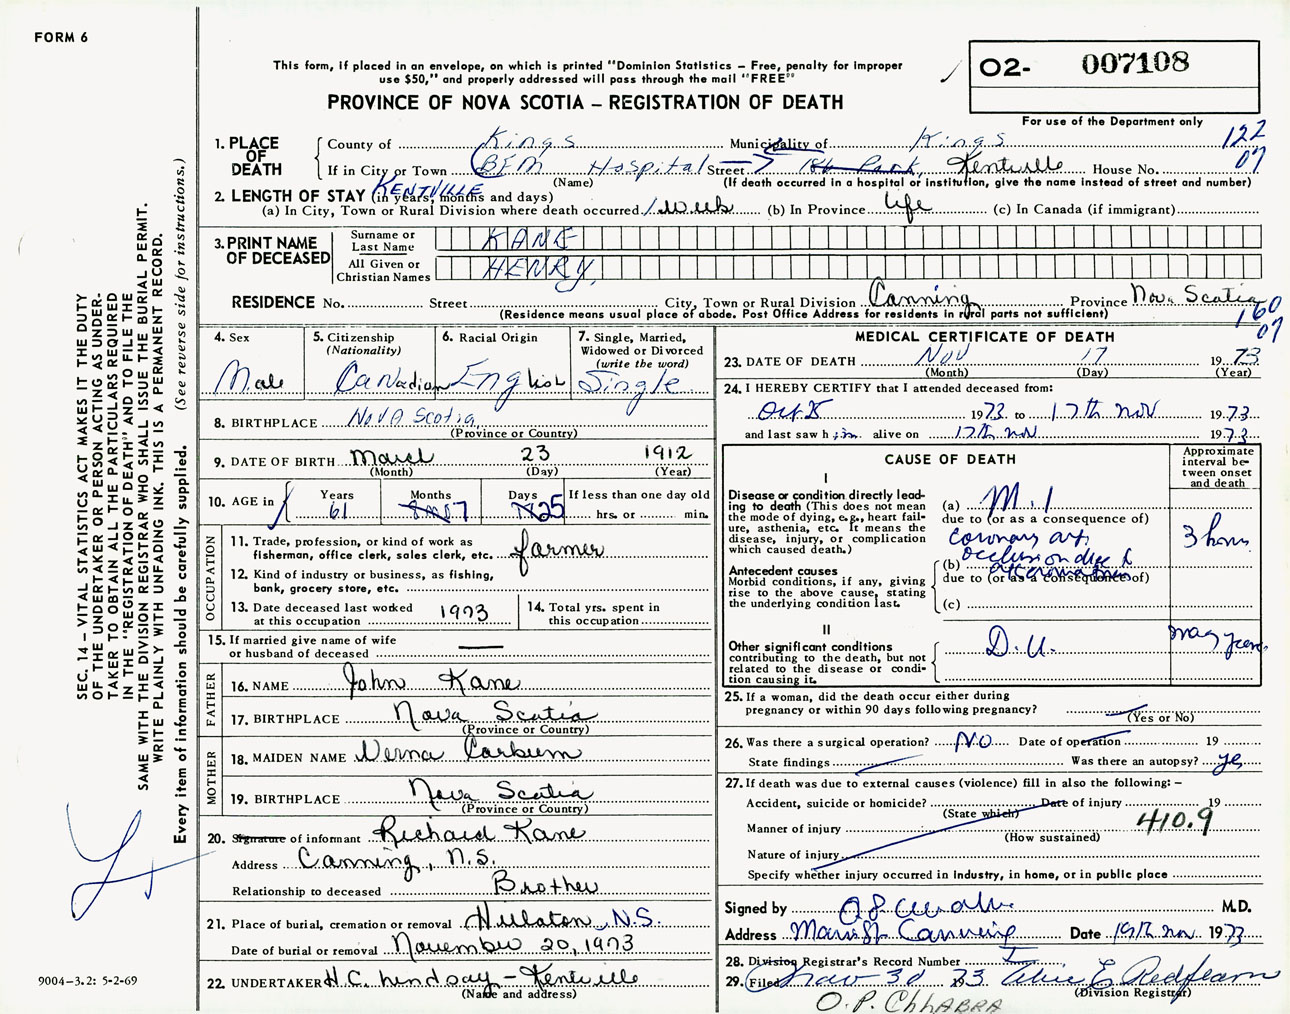 FORM 6
This form, if placed in an envelope, on which is printed "Dominion Statistics – Free, penalty for improper
use $50," and properly addressed will pass through the mail "FREE"
PROVINCE OF NOVA SCOTIA – REGISTRATION OF DEATH
O2- 007108
For use of the Department only
122
07
1. PLACE OF DEATH
County of Kings Municipality of Kings
If in City or Town BFM Hospital Street 186 Park, Kentville House No.
(Name) (If death occurred in a hospital or institution, give the name instead of street and number)
KENTVILLE
2. LENGTH OF STAY (in years, months and days)
(a) In City, Town or Rural Division where death occurred 1 week (b) In Province Life (c) In Canada (if immigrant)
3. PRINT NAME OF DECEASED
Surname or Last Name KANE
All Given or Christian Names HENRY,
RESIDENCE No. Street City, Town or Rural Division Canning Province Nova Scotia
(Residence means usual place of abode. Post Office Address for residents in rural parts not sufficient)
160
07
4. Sex Male
5. Citizenship (Nationality) Canadian
6. Racial Origin English
7. Single, Married, Widowed or Divorced (write the word) Single
8. BIRTHPLACE Nova Scotia
(Province or Country)
9. DATE OF BIRTH March 23 1912
(Month) (Day) (Year)
10. AGE in Years 61 Months 7 Days 25 If less than one day old
hrs. or min.
OCCUPATION
11. Trade, profession, or kind of work as
fisherman, office clerk, sales clerk, etc. farmer
12. Kind of industry or business, as fishing,
bank, grocery store, etc.
13. Date deceased last worked
at this occupation 1973
14. Total yrs. spent in
this occupation
15. If married give name of wife
or husband of deceased —
FATHER
16. NAME John Kane
17. BIRTHPLACE Nova Scotia
(Province or Country)
MOTHER
18. MAIDEN NAME Verna
19. BIRTHPLACE Nova Scotia
(Province or Country)
20. Signature of informant Richard Kane
Address Canning, N.S.
Relationship to deceased Brother
21. Place of burial, cremation or removal Hillaton, N.S.
Date of burial or removal November 20, 1973
22. UNDERTAKER H.C. Lindsay – Kentville
(Name and address)
MEDICAL CERTIFICATE OF DEATH
23. DATE OF DEATH Nov 17 1973
(Month) (Day) (Year)
24. I HEREBY CERTIFY that I attended deceased from:
Oct 1973 to 17th Nov 1973
and last saw him alive on 17th Nov 1973
CAUSE OF DEATH
Approximate
interval be-
tween onset
and death
I
Disease or condition directly lead-
ing to death (This does not mean
the mode of dying, e.g., heart fail-
ure, asthenia, etc. It means the
disease, injury, or complication
which caused death.)
(a) M.I
due to (or as a consequence of)
coronary art
3 hours
(b) occlusion
due to (or as a consequence of)
(c)
Antecedent causes
Morbid conditions, if any, giving
rise to the above cause, stating
the underlying condition last.
II
Other significant conditions
contributing to the death, but not
related to the disease or condi-
tion causing it.
D.U.
many years
25. If a woman, did the death occur either during
pregnancy or within 90 days following pregnancy?
(Yes or No)
26. Was there a surgical operation? NO Date of operation 19
State findings Was there an autopsy? yes
27. If death was due to external causes (violence) fill in also the following: –
Accident, suicide or homicide? Date of injury 19
(State which)
Manner of injury 410.9
(How sustained)
Nature of injury
Specify whether injury occurred in industry, in home, or in public place
Signed by M.D.
Address Main St Canning Date 19th Nov 1973
28. Division Registrar's Record Number
29. Filed Nov 30 1973 Alice E Redfearn
(Division Registrar)
O.P. CHHABRA
SEC. 14 – VITAL STATISTICS ACT MAKES IT THE DUTY
OF THE UNDERTAKER OR PERSON ACTING AS UNDER-
TAKER TO OBTAIN ALL THE PARTICULARS REQUIRED
IN THE "REGISTRATION OF DEATH" AND TO FILE THE
SAME WITH THE DIVISION REGISTRAR WHO SHALL ISSUE THE BURIAL PERMIT.
WRITE PLAINLY WITH UNFADING INK. THIS IS A PERMANENT RECORD.
Every item of information should be carefully supplied. (See reverse side for instructions.)
9004-3.2: 5-2-69